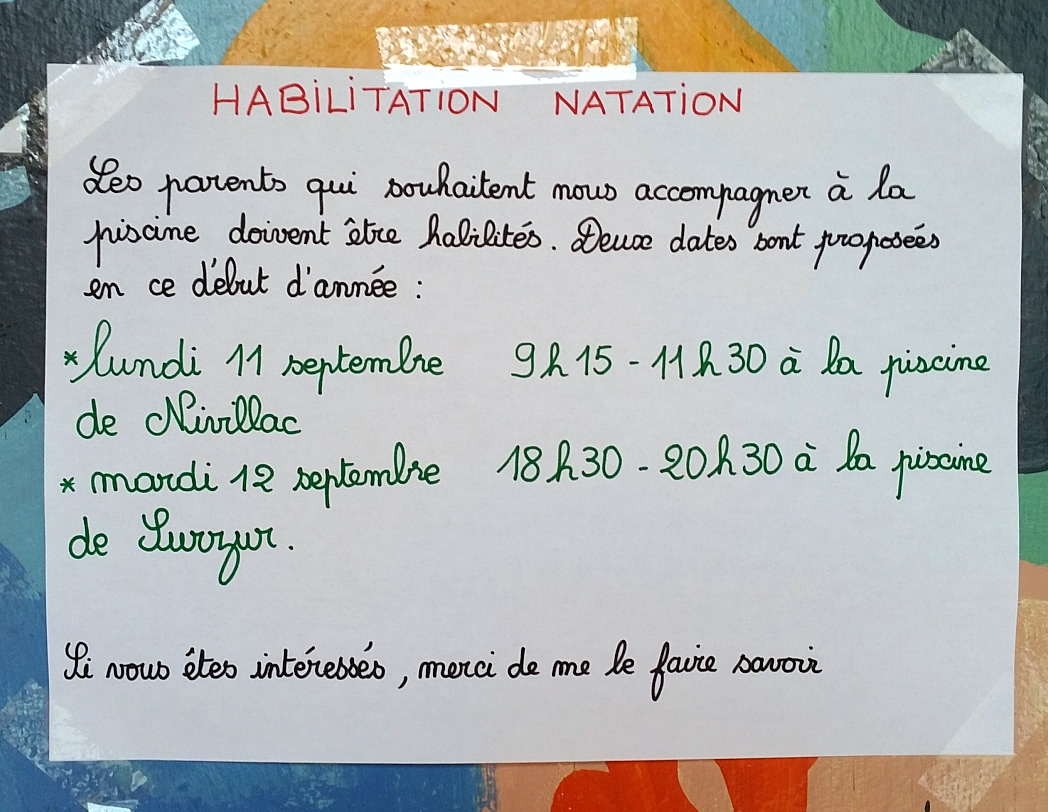 HABILITATION NATATION
Les parents qui souhaitent nous accompagner à la
piscine doivent être habilités. Deux dates sont proposées
en ce début d'année :
* lundi 11 septembre 9h15 - 11h30 à la piscine
de Nivillac
* mardi 12 septembre 18h30 - 20h30 à la piscine
de Surzur.
Si vous êtes intéressés, merci de me le faire savoir